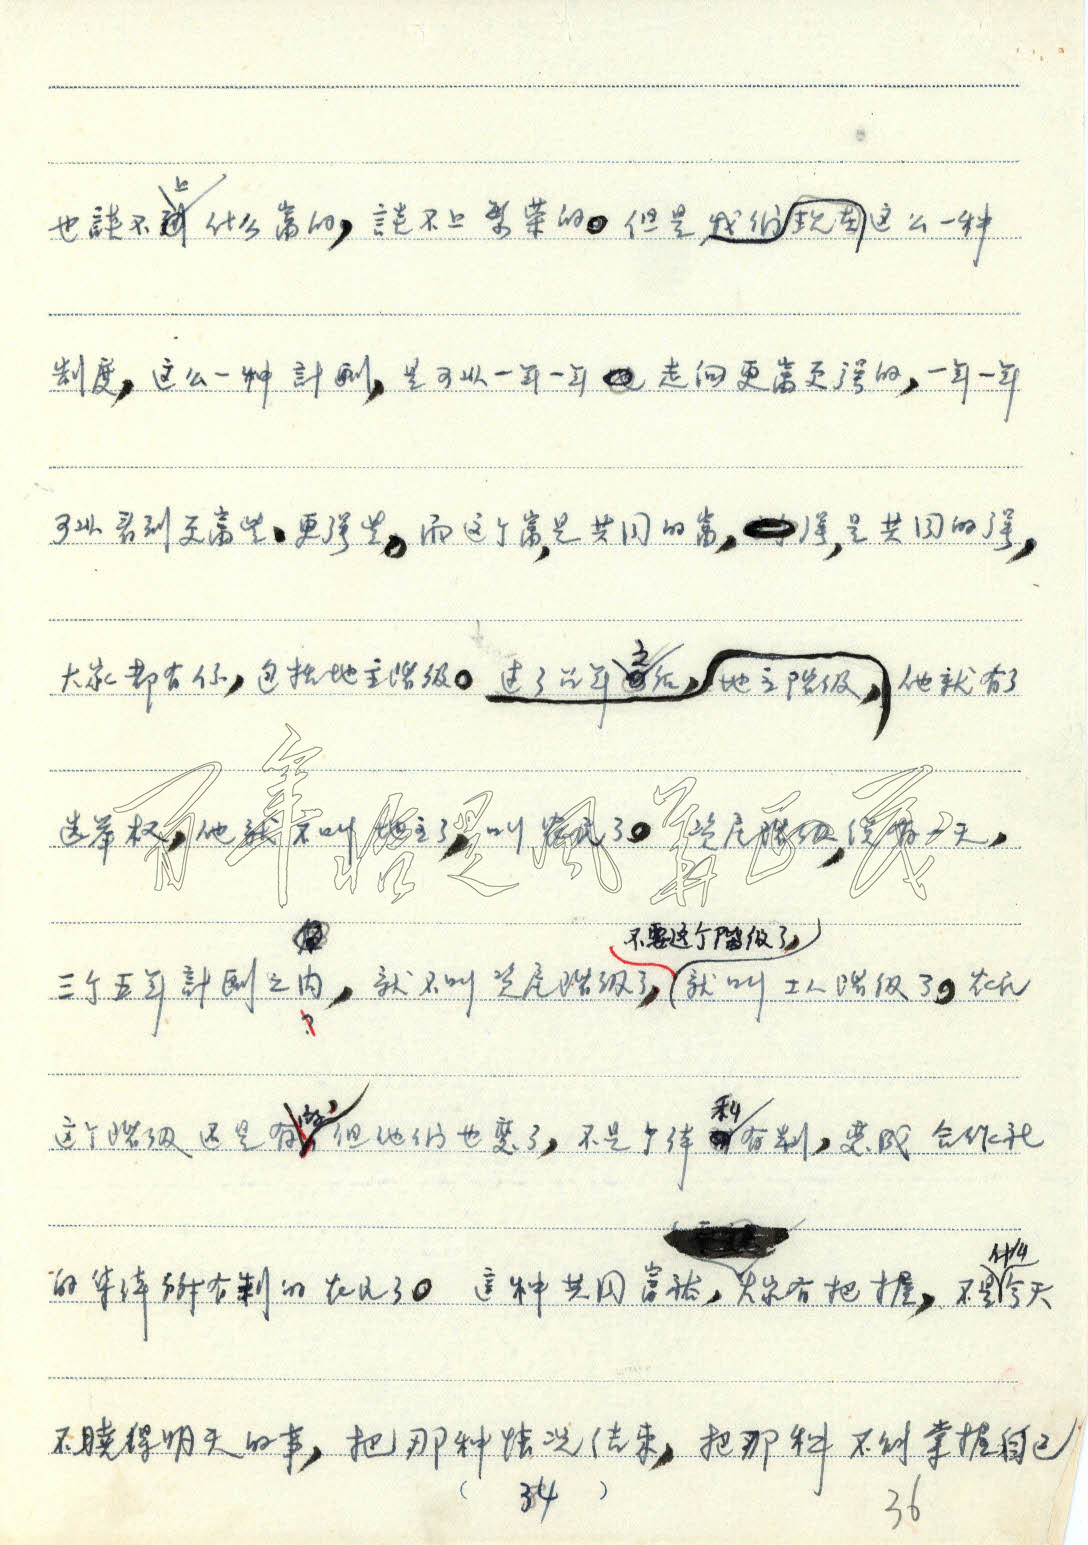 上
也談不到什么富的，談不上繁荣的。但是，我们现在这么一种
制度，这么一种計划，是可以一年一年走向更富更强的，一年一年
可以看到更富些、更强些。而这个富，是共同的富，强，是共同的强，
之
大家都有份，包括地主階级。过了几年后，地主階级，他就有了
选举权，他就不叫地主了，叫农民了。资产階级，总有一天，
不要这个階级了，
三个五年計划之内，就不叫资产階级了，就叫工人階级了。农民
?
利
这个階级还是有，但他们也变了，不是个体有制，变成合作社
的集体所有制的农民了。这种共同富裕，大家有把握，不是今天
什么
不曉得明天的事，把那种情况结束，把那种不能掌握自己
( 34 )
36